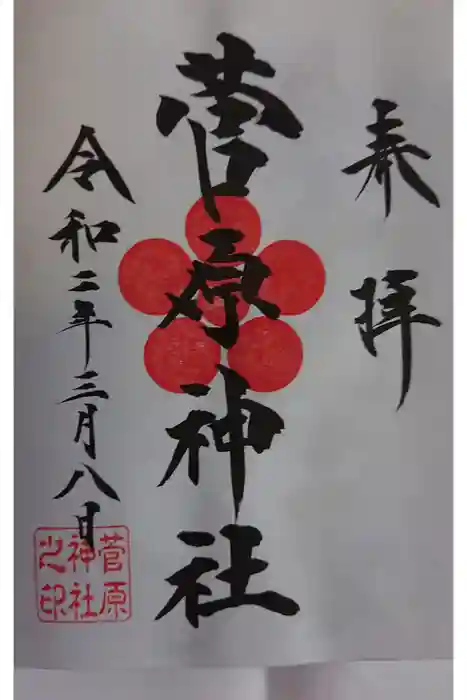 奉拝
菅原神社
令和二年三月八日
菅原
神社
之印